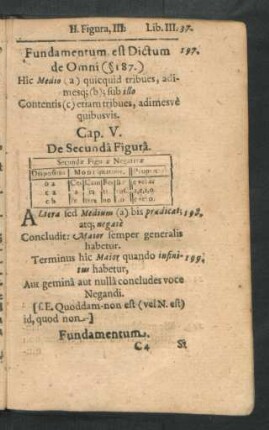 H. Figura, III. Lib. III. 37.
Fundamentum est Dictum 197.
de Omni (§187.)
Hîc Medio (a) quicquid tribues, adi-
mesq; (b), sub illo
Contentis (c) etiam tribues, adimesve
quibusvis.
Cap. V.
De Secundâ Figurâ.
Secundæ Figuræ Negativæ
Altera sed Medium (a) bis prædicat, 198.
atq; negatè
Concludit: Maior semper generalis
habetur.
Terminus hîc Maior quando infini- 199.
tus habetur,
Aut geminâ aut nullâ concludes voce
Negandi.
[i.E. Quoddam-non est (vel N. est)
id, quod non-]
Fundamentum.
C4 St